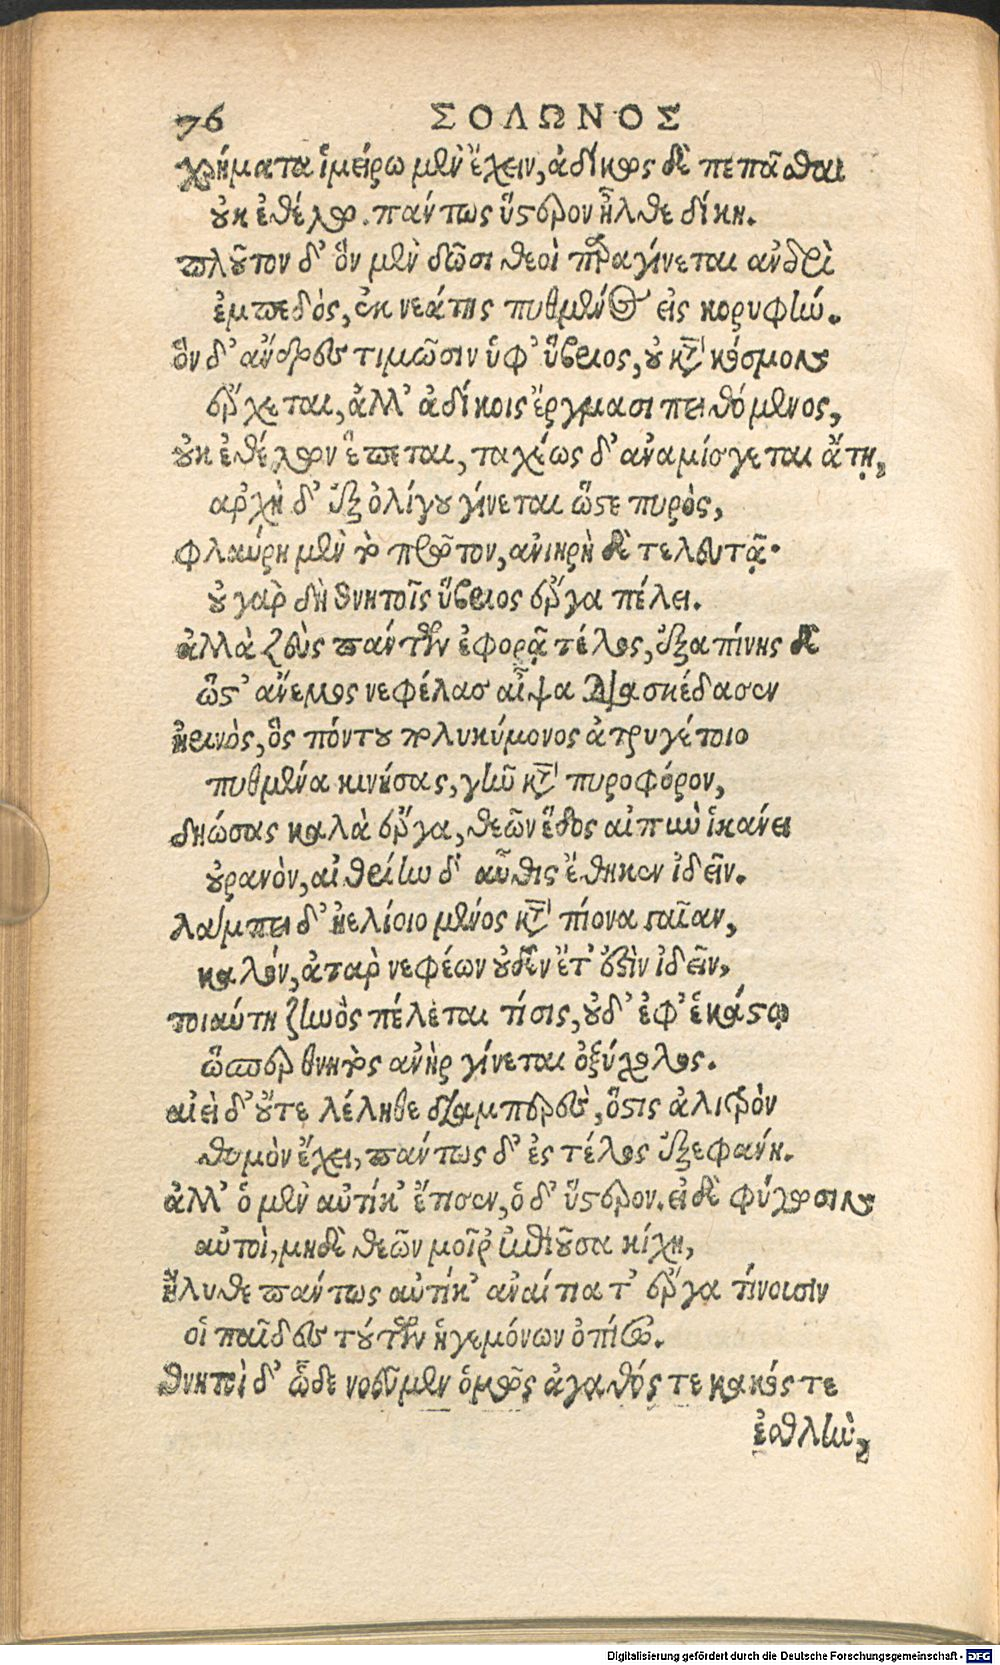 76 ΣΟΛΩΝΟΣ
χρήματα ἱμείρω μὲν ἔχειν, ἀδίκως δὲ πεπᾶσθαι
οὐκ ἐθέλω. πάντως ὕστερον ἦλθε δίκη.
πλοῦτον δ' ὃν μὲν δῶσι θεοὶ παραγίνεται ἀνδρὶ
ἔμπεδὸς, ἐκ νεάτης πυθμένος εἰς κορυφήν.
ὃν δ' ἄνδρες τιμῶσιν ὑφ' ὕβριος, οὐ κατὰ κόσμον
ἔρχεται, ἀλλ' ἀδίκοις ἔργμασι πειθόμενος,
οὐκ ἐθέλων ἕπεται, ταχέως δ' ἀναμίσγεται ἄτῃ,
ἀρχὴ δ' ἐξ ὀλίγου γίνεται ὥστε πυρὸς,
φλαύρη μὲν τὸ πρῶτον, ἀνιηρὴ δὲ τελευτᾷ·
οὐ γὰρ δὴ θνητοῖς ὕβριος ἔργα πέλει.
ἀλλὰ ζεὺς πάντων ἐφορᾷ τέλος, ἐξαπίνης δὲ
ὥστ' ἄνεμος νεφέλας αἶψα διασκέδασεν
ἠρινὸς, ὃς πόντου πολυκύμονος ἀτρυγέτοιο
πυθμένα κινήσας, γῆν κατὰ πυροφόρον,
δηώσας καλὰ ἔργα, θεῶν ἕδος αἰπὺν ἱκάνει
οὐρανὸν, αἰθρίην δ' αὖθις ἔθηκεν ἰδεῖν.
λάμπει δ' ἠελίοιο μένος κατὰ πίονα γαῖαν,
καλόν, ἀτὰρ νεφέων οὐδὲν ἔτ' ἐστὶν ἰδεῖν,
τοιαύτη ζηνὸς πέλεται τίσις, οὐδ' ἐφ' ἑκάστῳ
ὥσπερ θνητὸς ἀνὴρ γίνεται ὀξύχολος.
αἰεὶ δ' οὔτε λέληθε διαμπερὲς, ὅστις ἀλιτρὸν
θυμὸν ἔχει, πάντως δ' ἐς τέλος ἐξεφάνη.
ἀλλ' ὁ μὲν αὐτίκ' ἔτισεν, ὁ δ' ὕστερον. εἰ δὲ φύγωσιν
αὐτοὶ, μηδὲ θεῶν μοῖρ' ἐπιοῦσα κίχῃ,
ἤλυθε πάντως αὐτίκ' ἀναίτια τ' ἔργα τίνουσιν
οἱ παῖδες τούτων ἡγεμόνων ὀπίσω.
θνητοὶ δ' ὧδε νοεῦμεν ὁμῶς ἀγαθός τε κακός τε
ἐσθλὴν,
Digitalisierung gefördert durch die Deutsche Forschungsgemeinschaft - DFG